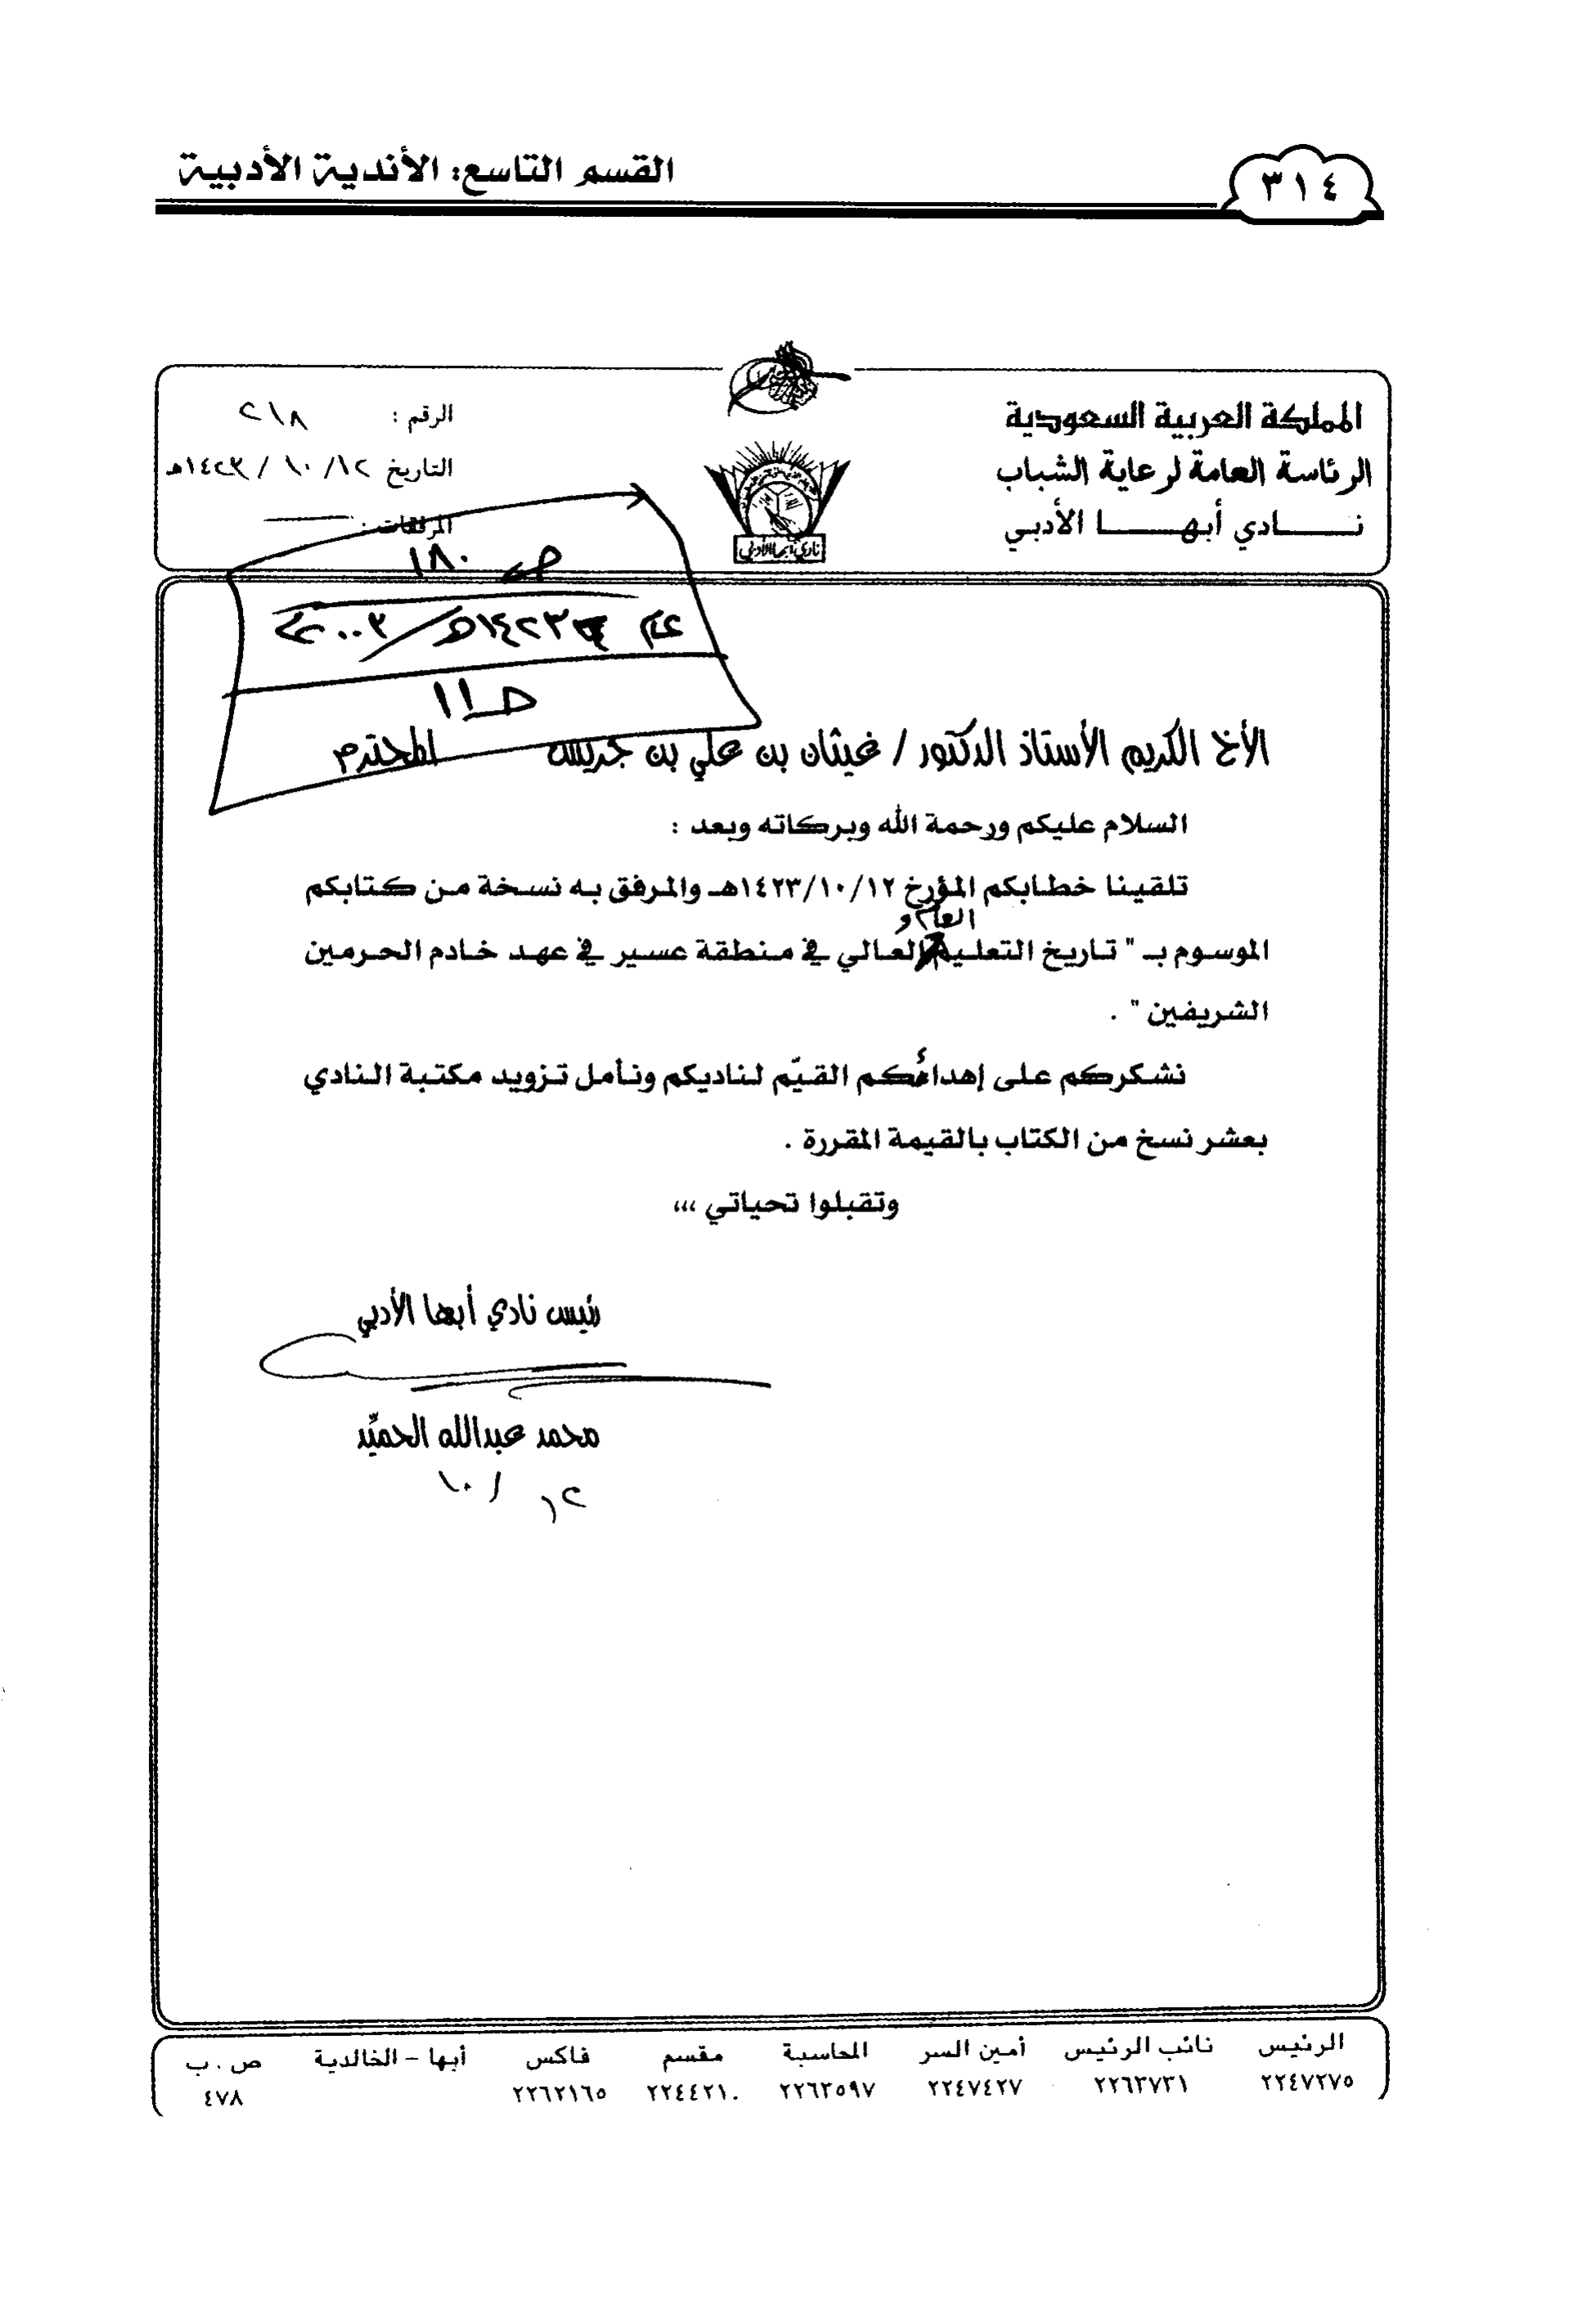 القسم التاسع: الأندية الأدبية
٣١٤
المملكة العربية السعودية
الرئاسة العامة لرعاية الشباب
نــــادي أبهــــا الأدبي
نادي أبها الأدبي
الرقم : ٢١٨
التاريخ ١٢/ ١٠ / ١٤٢٣هـ
المرفقات :
ص ١٨٠
عام ١٤٢٣هـ/٢٠٠٣م
حـ ١١
الأخ الكريم الأستاذ الدكتور / غيثان بن علي بن جريس المحترم
السلام عليكم ورحمة الله وبركاته وبعد :
تلقينا خطابكم المؤرخ ١٤٢٣/١٠/١٢هـ والمرفق به نسخة من كتابكم
العام و
الموسوم بـ " تاريخ التعليم العالي في منطقة عسير في عهد خادم الحرمين
الشريفين " .
نشكركم على إهداءكم القيّم لناديكم ونأمل تزويد مكتبة النادي
بعشر نسخ من الكتاب بالقيمة المقررة .
وتقبلوا تحياتي ،،،
رئيس نادي أبها الأدبي
محمد عبدالله الحميّد
١٢ / ١٠
الرئيس نائب الرئيس أمين السر المحاسبة مقسم فاكس أبها - الخالدية ص . ب
٢٢٤٧٢٧٥ ٢٢٦٣٧٣١ ٢٢٤٧٤٢٧ ٢٢٦٣٥٩٧ ٢٢٤٤٢١٠ ٢٢٦٢١٦٥ ٤٧٨